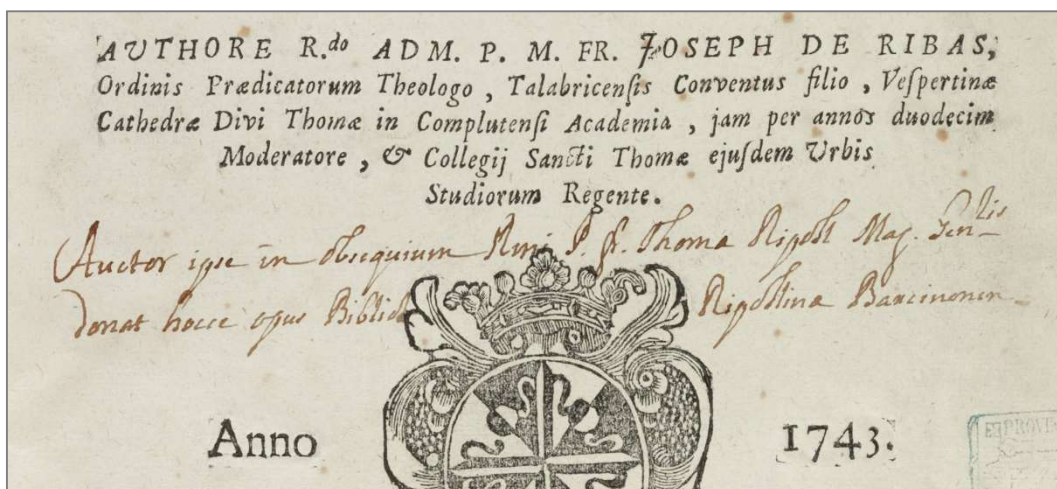 AUTHORE R.do ADM. P. M. FR. JOSEPH DE RIBAS,
Ordinis Prædicatorum Theologo, Talabricensis Conventus filio, Vespertinæ
Cathedræ Divi Thomæ in Complutensi Academia, jam per annos duodecim
Moderatore, & Collegij Sancti Thomæ ejusdem Urbis
Studiorum Regente.
Auctor ipse in obsequium Rmi P. fr. Thoma Ripoll Mag. Genlis
donat hocce opus Biblio Ripollina Barcinonen
Anno 1743.